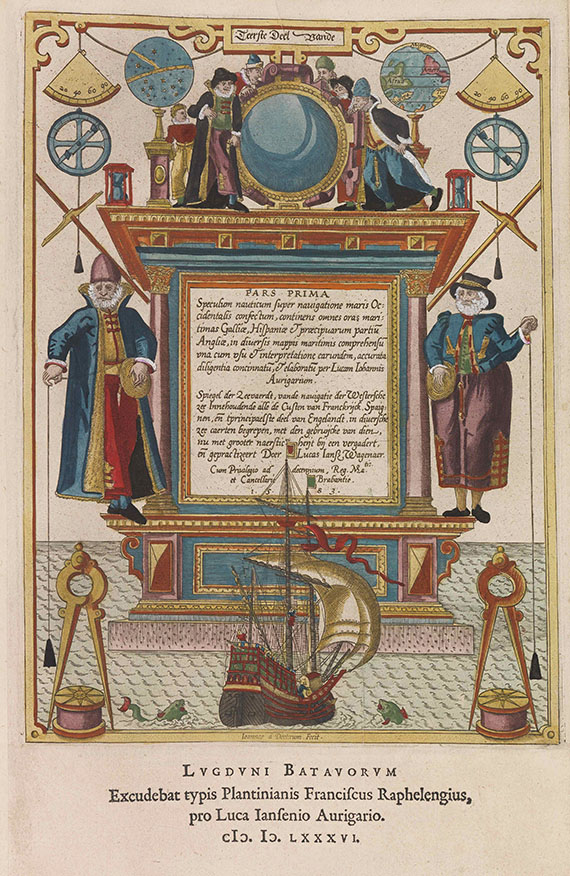 Teerste Deel Vande
20 40 60 80
20 40 60 80
PARS PRIMA
Speculum nauticum super navigatione maris Oc-
cidentalis confectum, continens omnes oras mari-
timas Galliæ, Hispaniæ & præcipuarum partiũ
Angliæ, in diversis mappis maritimis comprehensũ
una cum usu & interpretatione earundem, accurata
diligentia concinnatũ, & elaboratũ per Lucam Iohannis
Aurigarium.
Spiegel der Zeevaerdt, vande navigatie der Westersche
zee Innehoudende alle de Custen van Franckrijck, Spaig-
nen, eñ tprincipaelste deel van Engelandt, in diversche
zee caerten begrepen, met den gebruijcke van dien,
nu met grooter naersticheijt bij een vergadert,
eñ gepractizeert Doer Lucas Iansz Wagenaer.
Cum Privilegio ad decennium, Reg. Ma.tis
et Cancellarie Brabantie.
1 5 8 3.
Ioannes à Doetecum. Fecit.
LVGDVNI BATAVORVM
Excudebat typis Plantinianis Franciſcus Raphelengius,
pro Luca Ianſenio Aurigario.
cIɔ. Iɔ. LXXXVI.